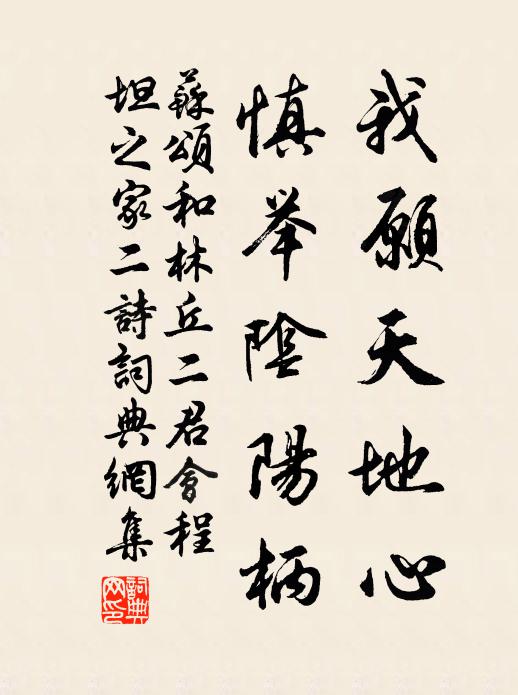 我願天地心
慎举陰陽柄
蘇頌和林丘二君會程
坦之家二詩詞典網集
詞典网印